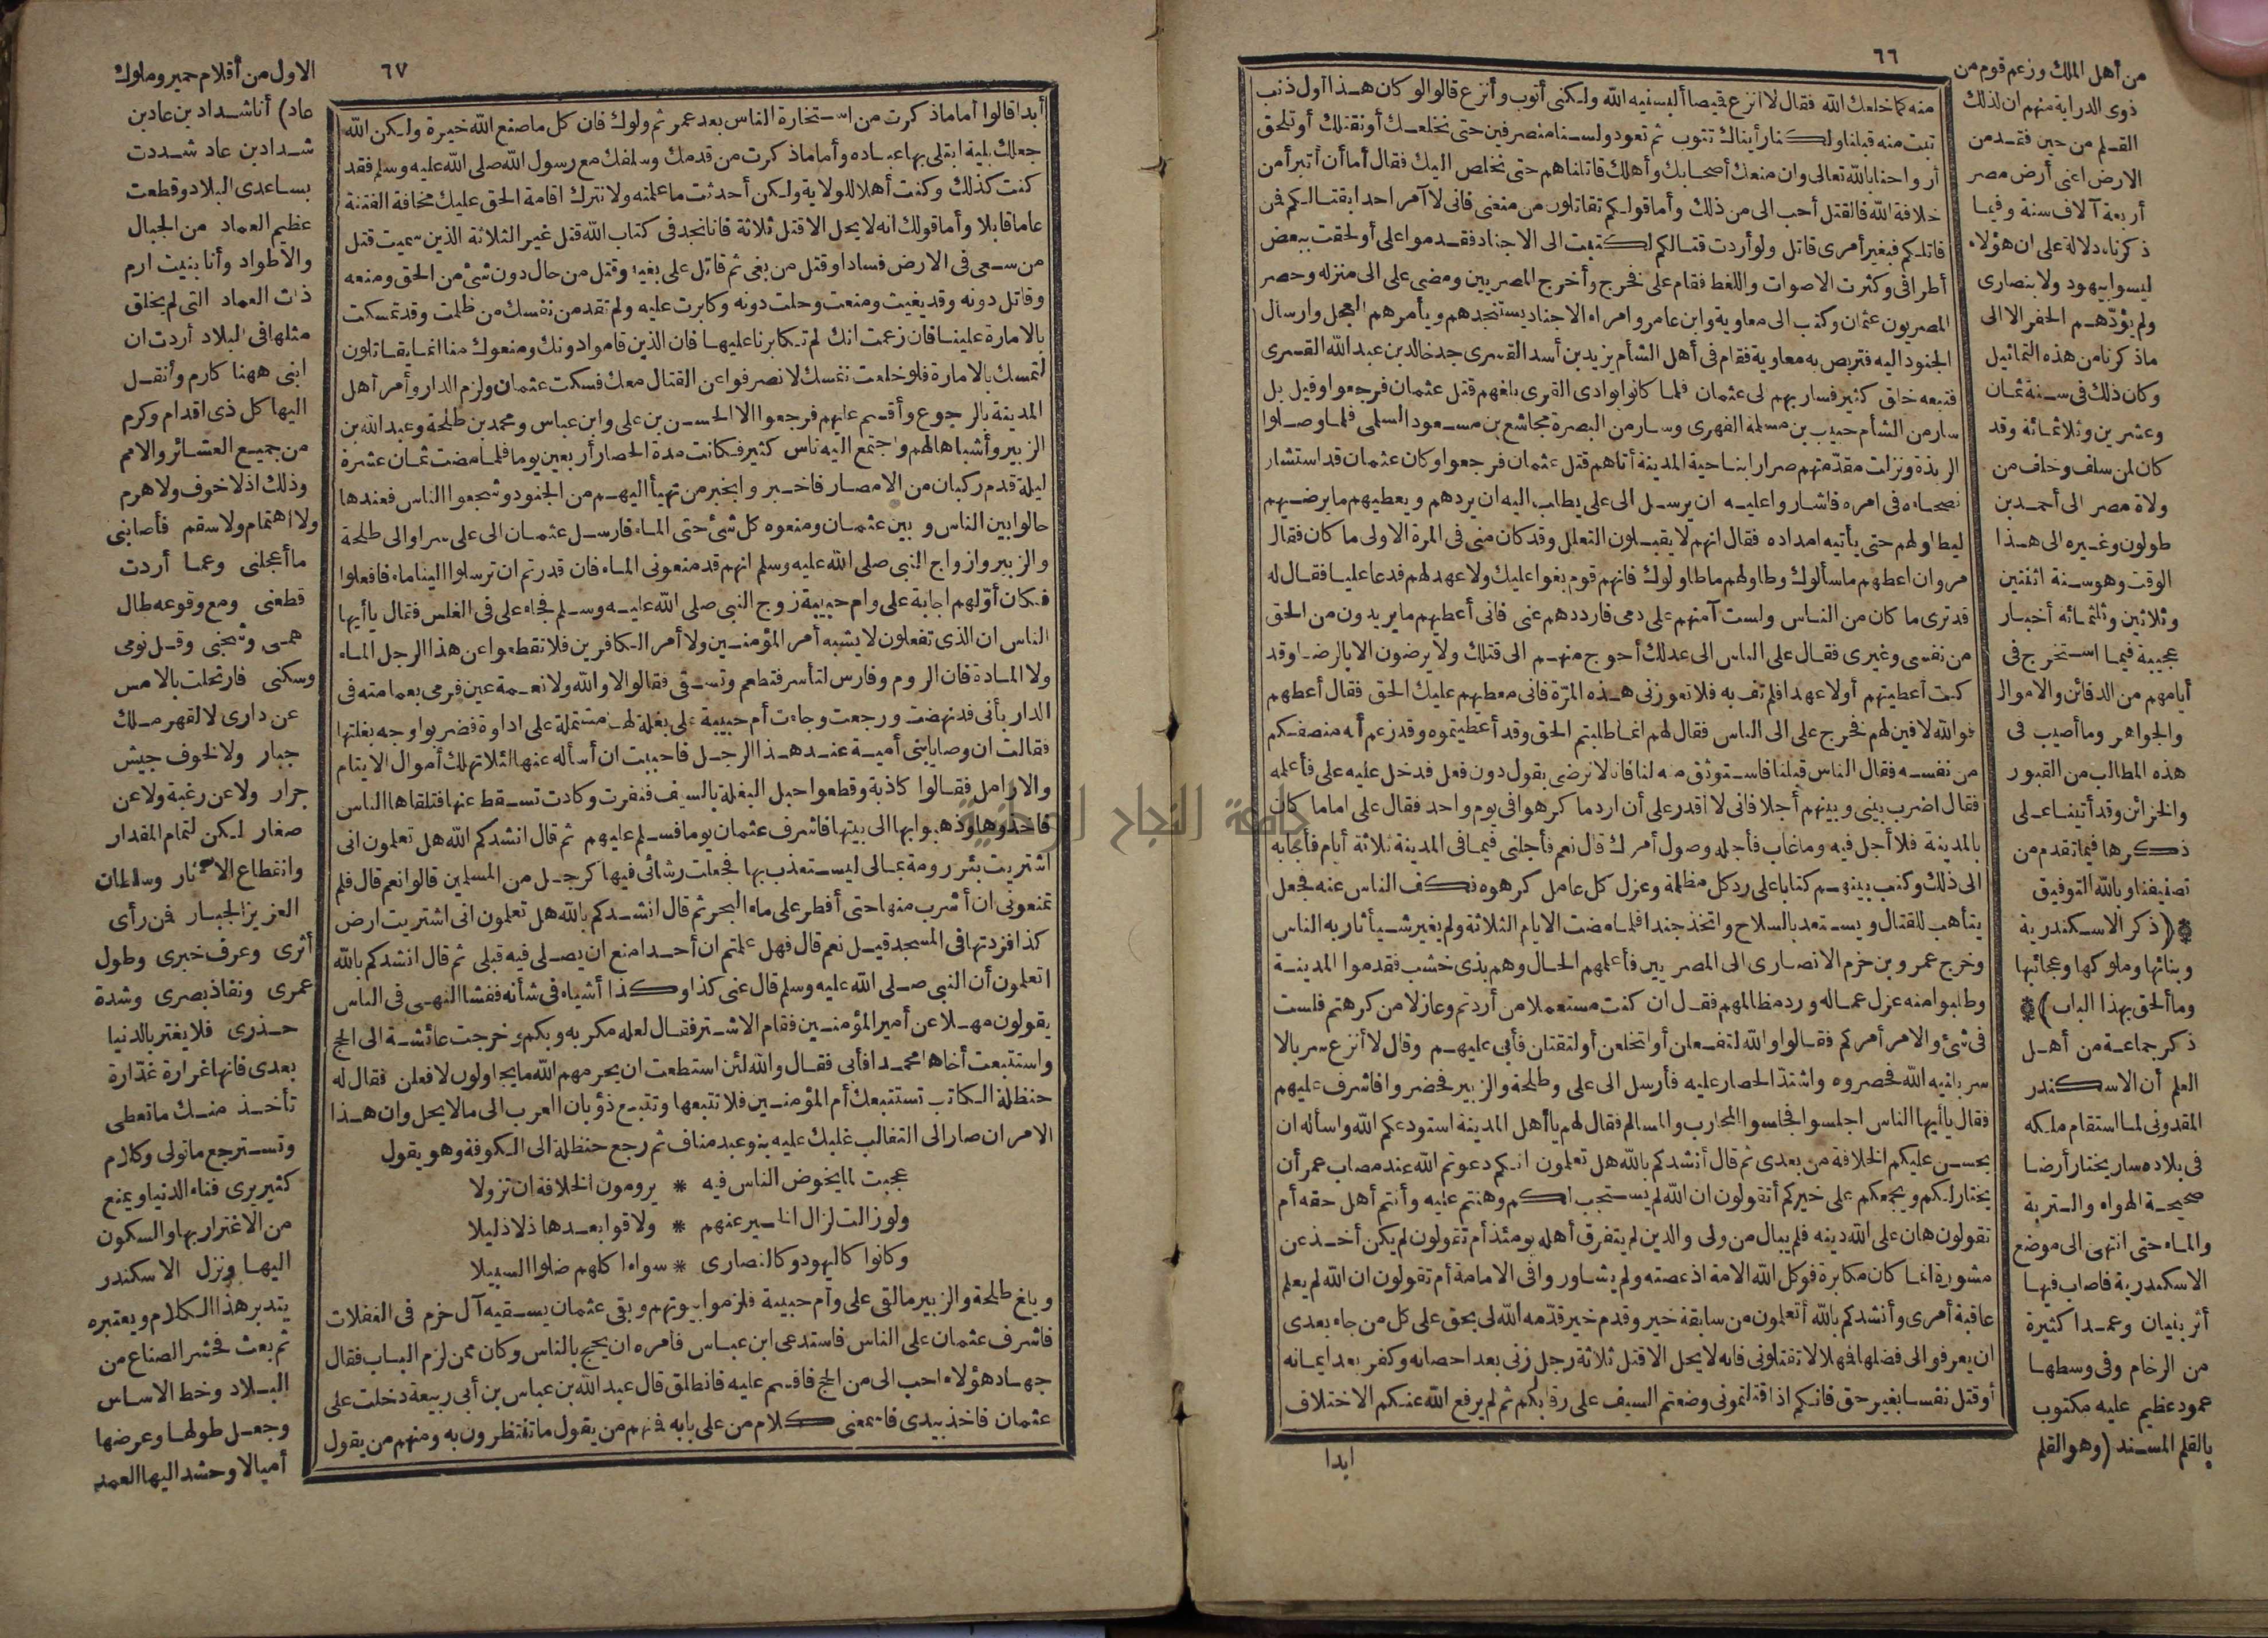 ٦٦
منه كما خلعك الله فقال لا انزع قيصا ألبسنيه الله ولكنى أتوب وأنزع قالوا لو كان هذا أول ذنب
تبت منه قبلنا ولكنا رأيناك تتوب ثم تعود ولسنا منصرفين حتى نخلعك أو نقتلك أو تلحق
أرواحنا بالله تعالى وان منعك أصحابك وأهلك قاتلناهم حتى نخلص اليك فقال أما أن أتبرأ من
خلافة الله فالقتل أحب الى من ذلك وأما قولكم تقاتلون من منعنى فانى لا آمر احدا بقتالكم فن
قاتلكم فبغير أمرى قاتل ولو أردت قتالكم لكتبت الى الاجناد فقدموا على أو لحقت ببعض
أطرافى وكثرت الاصوات واللغط فقام على فخرج وأخرج المصريين ومضى على الى منزله وحصر
المصريون عثمان وكتب الى معاوية وابن عامر وامراء الاجناد يستنجدهم ويأمرهم العجل وارسال
الجنود اليه فتربص به معاوية فقام فى أهل الشأم يزيد بن أسد القسرى جد خالد بن عبد الله القسرى
فتبعه خلق كثير فسار بهم لى عثمان فلما كانوا بوادى القرى بلغهم قتل عثمان فرجعوا وقيل بل
سار من الشأم حبيب بن مسلمة الفهرى وسار من البصرة مجاشع بن مسعود السلمى فلما وصلوا
الربذة ونزلت مقدّمتهم صرارا بناحية المدينة أتاهم قتل عثمان فرجعوا وكان عثمان قد استشار
نصحاءه فى امره فاشاروا عليه ان يرسل الى على يطلب اليه ان يردهم ويعطيهم ما يرضيهم
ليطاولهم حتى يأتيه امداده فقال انهم لا يقبلون التعلل وقد كان منى فى المرة الاولى ما كان فقال
مروان اعطهم ما سألوك وطاولهم ما طاولوك فانهم قوم بغوا عليك ولا عهد لهم فدعا عليا فقال له
قد ترى ما كان من الناس ولست آمنهم على دمى فارددهم عنى فانى أعطيهم ما يريدون من الحق
من نفسى وغيرى فقال على الناس الى عدلك أحوج منهم الى قتلك ولا يرضون الا بالرضا وقد
كنت أعطيتهم أولا عهدا فلم تف به فلا تغرنى هذه المرّة فانى معطيهم عليك الحق فقال أعطهم
فوالله لافين لهم فخرج على الى الناس فقال لهم انما طلبتم الحق وقد أعطيتموه وقد زعم أنه منصفكم
من نفسه فقال الناس قبلنا فاستوثق منه لنا فانا لا نرضى بقول دون فعل فدخل عليه على فأعلمه
فقال اضرب بينى وبينهم أجلا فانى لا أقدر على أن ارد ما كرهوا فى يوم واحد فقال على اما ما كان
بالمدينة فلا أجل فيه وما غاب فأجله وصول أمرك قال نعم فأجلنى فيما فى المدينة ثلاثة أيام فأجابه
الى ذلك وكتب بينهم كتابا على رد كل مظلمة وعزل كل عامل كرهوه فكف الناس عنه فجعل
يتأهب للقتال ويستعد بالسلاح واتخذ جندا فلما مضت الايام الثلاثة ولم يغير شيأ ثار به الناس
وخرج عمرو بن حزم الانصارى الى المصريين فأعلمهم الحال وهم بذى خشب فقدموا المدينة
وطلبوا منه عزل عماله ورد مظالمهم فقال ان كنت مستعملا من أردتم وعازلا من كرهتم فلست
فى شئ والامر أمركم فقالوا والله لتفعلن أو لتخلعن أو لتقتلن فأبى عليهم وقال لا أنزع سربالا
سربلنيه الله فحصروه واشتدّ الحصار عليه فأرسل الى على وطلحة والزبير فحضروا فاشرف عليهم
فقال يأيها الناس اجلسوا فجلسوا المحارب والمسالم فقال لهم يا أهل المدينة استودعكم الله واسأله ان
يحسن عليكم الخلافة من بعدى ثم قال أنشدكم بالله هل تعلمون انكم دعوتم الله عند مصاب عمر أن
يختار لكم ويجمعكم على خيركم أتقولون ان الله لم يستجب لكم وهنتم عليه وأنتم أهل حقه أم
تقولون هان على الله دينه فلم يبال من ولى والدين لم يتفرق أهله يومئذ أم تقولون لم يكن أخذ عن
مشورة انما كان مكابرة فوكل الله الامة اذ عصته ولم يشاوروا فى الامامة أم تقولون ان الله لم يعلم
عاقبة أمرى وأنشدكم بالله أتعلمون من سابقة خير وقدم خير قدّمه الله لى بحق على كل من جاء بعدى
ان يعرفوا لى فضلها فهلا لا تقتلونى فانه لا يحل الا قتل ثلاثة رجل زنى بعد احصانه وكفر بعد ايمانه
أو قتل نفسا بغير حق فانكم اذا قتلتمونى وضعتم السيف على رقابكم ثم لم يرفع الله عنكم الاختلاف
ابدا
من أهل الملك وزعم قوم من
ذوى الدراية منهم ان لذلك
القلم من حين فقد من
الارض اعنى أرض مصر
أربعة آلاف سنة وفيما
ذكرناه دلالة على ان هؤلاء
ليسوا بيهود ولا بنصارى
ولم يؤدّهم الحفر الا الى
ما ذكرنا من هذه التماثيل
وكان ذلك فى سنة ثمان
وعشرين وثلاثمائة وقد
كان لمن سلف وخلف من
ولاة مصر الى أحمد بن
طولون وغيره الى هذا
الوقت وهو سنة اثنتين
وثلاثين وثلثمائه أخبار
عجيبة فيما استخرج فى
أيامهم من الدفائن والاموال
والجواهر وما أصيب فى
هذه المطالب من القبور
والخزائن وقد أتينا على
ذكرها فيما تقدم من
تصنيفنا وبالله التوفيق
(ذكر الاسكندرية
وبنائها وملوكها وعجائبها
وما ألحق بهذا الباب)
ذكر جماعة من أهل
العلم أن الاسكندر
المقدونى لما استقام ملكه
فى بلاده سار يختار أرضا
صحيحة الهواء والتربة
والماء حتى انتهى الى موضع
الاسكندرية فاصاب فيها
أثر بنيان وعمدا كثيرة
من الرخام وفى وسطها
عمود عظيم عليه مكتوب
بالقلم المسند (وهو القلم
٦٧
أبدا قالوا أما ما ذكرت من استخارة الناس بعد عمر ثم ولوك فان كل ما صنع الله خيرة ولكن الله
جعلك بلية ابتلى بها عباده وأما ما ذكرت من قدمك وسلفك مع رسول الله صلى الله عليه وسلم فقد
كنت كذلك وكنت أهلا للولاية ولكن أحدثت ما علمته ولا نترك اقامة الحق عليك مخافة الفتنة
عاما قابلا وأما قولك انه لا يحل الا قتل ثلاثة فانا نجد فى كتاب الله قتل غير الثلاثة الذين سميت قتل
من سعى فى الارض فسادا وقتل من بغى ثم قاتل على بغيه وقتل من حال دون شئ من الحق ومنعه
وقاتل دونه وقد بغيت ومنعت وحلت دونه وكابرت عليه ولم تقد من نفسك من ظلمت وقد تمسكت
بالامارة علينا فان زعمت انك لم تكابرنا عليها فان الذين قاموا دونك ومنعوك منا انما يقاتلون
لتمسك بالامارة فلو خلعت نفسك لانصرفوا عن القتال معك فسكت عثمان ولزم الدار وأمر أهل
المدينة بالرجوع وأقسم عليهم فرجعوا الا الحسن بن على وابن عباس ومحمد بن طلحة وعبد الله بن
الزبير وأشباها لهم واجتمع اليه ناس كثير فكانت مدة الحصار أربعين يوما فلما مضت ثمان عشرة
ليلة قدم ركبان من الامصار فاخبر وا بخبر من تهيأ اليهم من الجنود وشجعوا الناس فعندها
حالوا بين الناس وبين عثمان ومنعوه كل شئ حتى الماء فارسل عثمان الى على سرا والى طلحة
والزبير وازواج النبى صلى الله عليه وسلم انهم قد منعونى الماء فان قدرتم ان ترسلوا الينا ماء فافعلوا
فكان أوّلهم اجابة على وام حبيبة زوج النبى صلى الله عليه وسلم فجاء على فى الغلس فقال يا أيها
الناس ان الذى تفعلون لا يشبه أمر المؤمنين ولا أمر الكافرين فلا تقطعوا عن هذا الرجل الماء
ولا المادة فان الروم وفارس لتأسر فتطعم وتسقى فقالوا لا والله ولا نعمة عين فرمى بعمامته فى
الدار بأنى قد نهضت ورجعت وجاءت أم حبيبة على بغلة لها مشتملة على اداوة فضربوا وجه بغلتها
فقالت ان وصايا بنى أمية عند هذا الرجل فاحببت ان أسأله عنها لئلا تهلك أموال الايتام
والارامل فقالوا كاذبة وقطعوا حبل البغلة بالسيف فنفرت وكادت تسقط عنها فتلقاها الناس
فاخذوها وذهبوا بها الى بيتها فاشرف عثمان يوما فسلم عليهم ثم قال انشدكم الله هل تعلمون انى
اشتريت بئر رومة بمالى ليستعذب بها فجعلت رشائى فيها كرجل من المسلمين قالوا نعم قال فلم
تمنعونى ان أشرب منها حتى أفطر على ماء البحر ثم قال انشدكم بالله هل تعلمون انى اشتريت ارض
كذا فزدتها فى المسجد قيل نعم قال فهل علمتم ان أحدا منع ان يصلى فيه قبلى ثم قال انشدكم بالله
اتعلمون أن النبى صلى الله عليه وسلم قال عنى كذا وكذا أشياء فى شأنه ففشا النهى فى الناس
يقولون مهلا عن أمير المؤمنين فقام الاشتر فقال لعله مكر به وبكم خرجت عائشة الى الحج
واستتبعت أخاها محمدا فأبى فقال والله لئن استطعت ان يحرمهم الله ما يحاولون لافعلن فقال له
حنظلة الكاتب تستتبعك أم المؤمنين فلا تتبعها وتتبع ذؤبان العرب الى ما لا يحل وان هذا
الامر ان صار الى التغالب غلبك عليه بنو عبد مناف ثم رجع حنظلة الى الكوفة وهو يقول
عجبت لما يخوض الناس فيه * يرومون الخلافة ان تزولا
ولو زالت لزال الخير عنهم * ولاقوا بعدها ذلا ذليلا
وكانوا كاليهود وكالنصارى * سواء كلهم ضلوا السبيلا
وبلغ طلحة والزبير ما لقى على وأم حبيبة فلزموا بيوتهم وبقى عثمان يسقيه آل حزم فى الغفلات
فاشرف عثمان على الناس فاستدعى ابن عباس فامره ان يحج بالناس وكان ممن لزم الباب فقال
جهاد هؤلاء احب الى من الحج فاقسم عليه فانطلق قال عبد الله بن عباس بن أبى ربيعة دخلت على
عثمان فاخذ بيدى فاسمعنى كلام من على بابه فمنهم من يقول ما تنتظرون به ومنهم من يقول
الاول من أقلام حمير وملوك
عاد) أنا شداد بن عاد بن
شداد بن عاد شددت
بساعدى البلاد وقطعت
عظيم العماد من الجبال
والاطواد وأنا بنيت ارم
ذات العماد التى لم يخلق
مثلها فى البلاد أردت ان
ابنى ههنا كارم وأنقل
اليها كل ذى اقدام وكرم
من جميع العشائر والامم
وذلك اذ لا خوف ولا هرم
ولا اهتمام ولا سقم فأصابنى
ما أعجلنى وعما أردت
قطعنى ومع وقوعه طال
همى وشجنى وقل نومى
وسكنى فارتحلت بالامس
عن دارى لا لقهر ملك
جبار ولا لخوف جيش
جرار ولا عن رغبة ولا عن
صغار لكن لتمام المقدار
وانقطاع الآثار وسلطان
العزيز الجبار فمن رأى
أثرى وعرف خبرى وطول
عمرى ونفاذ بصرى وشدة
حذرى فلا يغتر بالدنيا
بعدى فانها غرارة غدّارة
تأخذ منك ما تعطى
وتسترجع ما تولى وكلام
كثير يرى فناء الدنيا ويمنع
من الاغترار بها والسكون
اليها ونزل الاسكندر
يتدبر هذا الكلام ويعتبره
ثم بعث فحشر الصناع من
البلاد وخط الاساس
وجعل طولها وعرضها
أميالا وحشد اليها العمد
جامعة النجاح الوطنية